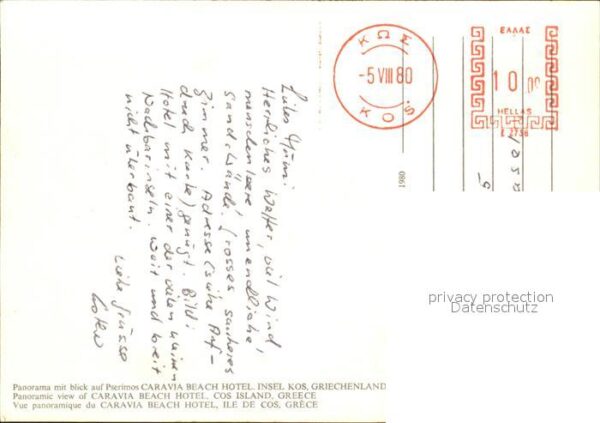 ΚΩΣ
-5 VIII 80
KOS
ΕΛΛΑΣ
10 00
HELLAS
Herrliches Wetter, viel Wind,
menschenleere, unendliche
Sandstrände. Grosses sauberes
Zimmer. Adresse (siehe Auf-
druck Karte) genügt. Bild:
Hotel mit einer der vielen kleinen
Nachbarinseln. Weit und breit
nicht überbaut.
Liebe Grüsse
1980
5
privacy protection
Datenschutz
Panorama mit blick auf Pterimos CARAVIA BEACH HOTEL, INSEL KOS, GRIECHENLAND
Panoramic view of CARAVIA BEACH HOTEL, COS ISLAND, GREECE
Vue panoramique du CARAVIA BEACH HOTEL, ILE DE COS, GRÈCE